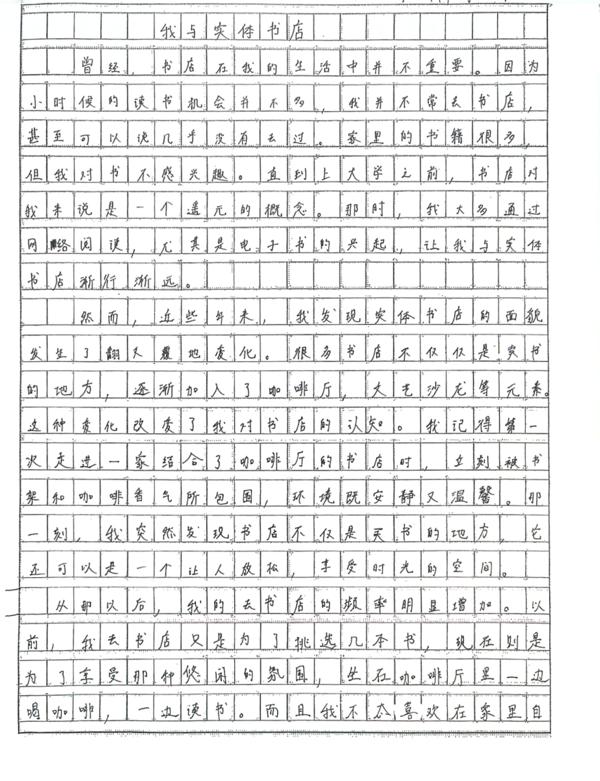 我与实体书店
曾经，书店在我的生活中并不重要。因为
小时候的读书机会并不多，我并不常去书店，
甚至可以说几乎没有去过。家里的书籍很多，
但我对书不感兴趣。直到上大学之前，书店对
我来说是一个遥远的概念。那时，我大多通过
网络阅读，尤其是电子书的兴起，让我与实体
书店渐行渐远。
然而，近些年来，我发现实体书店的面貌
发生了翻天覆地变化。很多书店不仅仅是卖书
的地方，逐渐加入了咖啡厅，文艺沙龙等元素。
这种变化改变了我对书店的认知。我记得第一
次走进一家结合了咖啡厅的书店时，立刻被书
架和咖啡香气所包围，环境既安静又温馨。那
一刻，我突然发现书店不仅是买书的地方，它
还可以是一个让人放松，享受时光的空间。
从那以后，我的去书店的频率明显增加。以
前，我去书店只是为了挑选几本书，现在则是
为了享受那种悠闲的氛围，坐在咖啡厅里一边
喝咖啡，一边读书。而且我不太喜欢在家里自